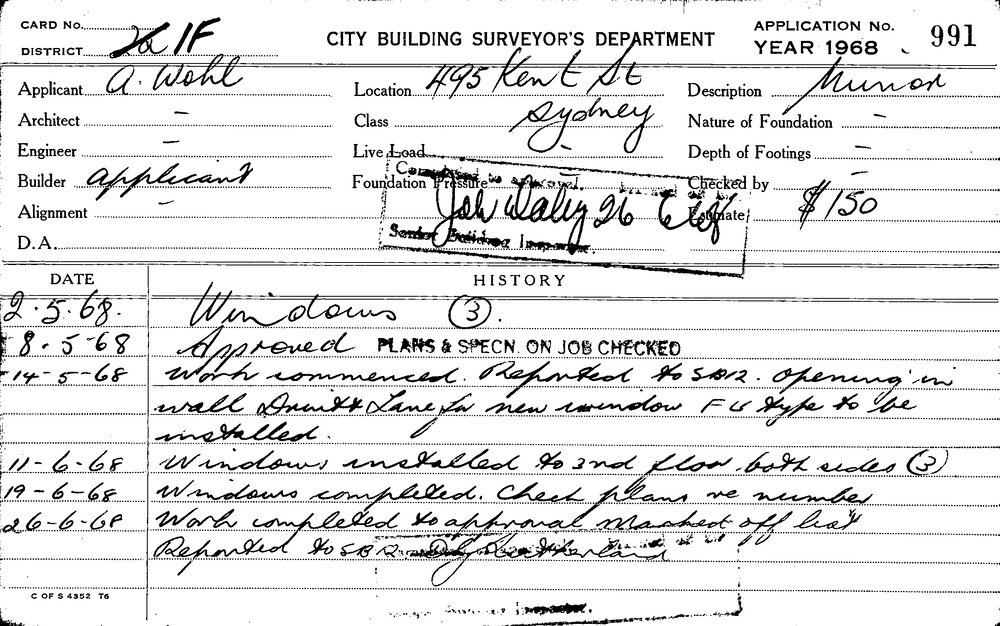 CARD No. CITY BUILDING SURVEYOR'S DEPARTMENT APPLICATION No. 991
DISTRICT 1F YEAR 1968
Applicant A. Wohl Location 495 Kent St Description Minor
Architect — Class Sydney Nature of Foundation —
Engineer — Live Load - Depth of Footings —
Builder applicant Foundation Pressure Checked by —
Completed to approval.
Alignment — Estimate $150
26 6 68
Senior Building Inspector.
D.A.
DATE HISTORY
2.5.68. Windows (3).
8.5-68 Approved PLANS & SPECN. ON JOB CHECKED
14-5-68 Work commenced. Reported to SBR. opening in
wall Druitt Lane for new window F G type to be
installed.
11-6-68 Windows installed to 2nd floor both sides (3)
19-6-68 Windows completed. Check plans re number
26-6-68 Work completed to approval marked off list
Reported to SBR
Inspector.
C OF S 4352 T6